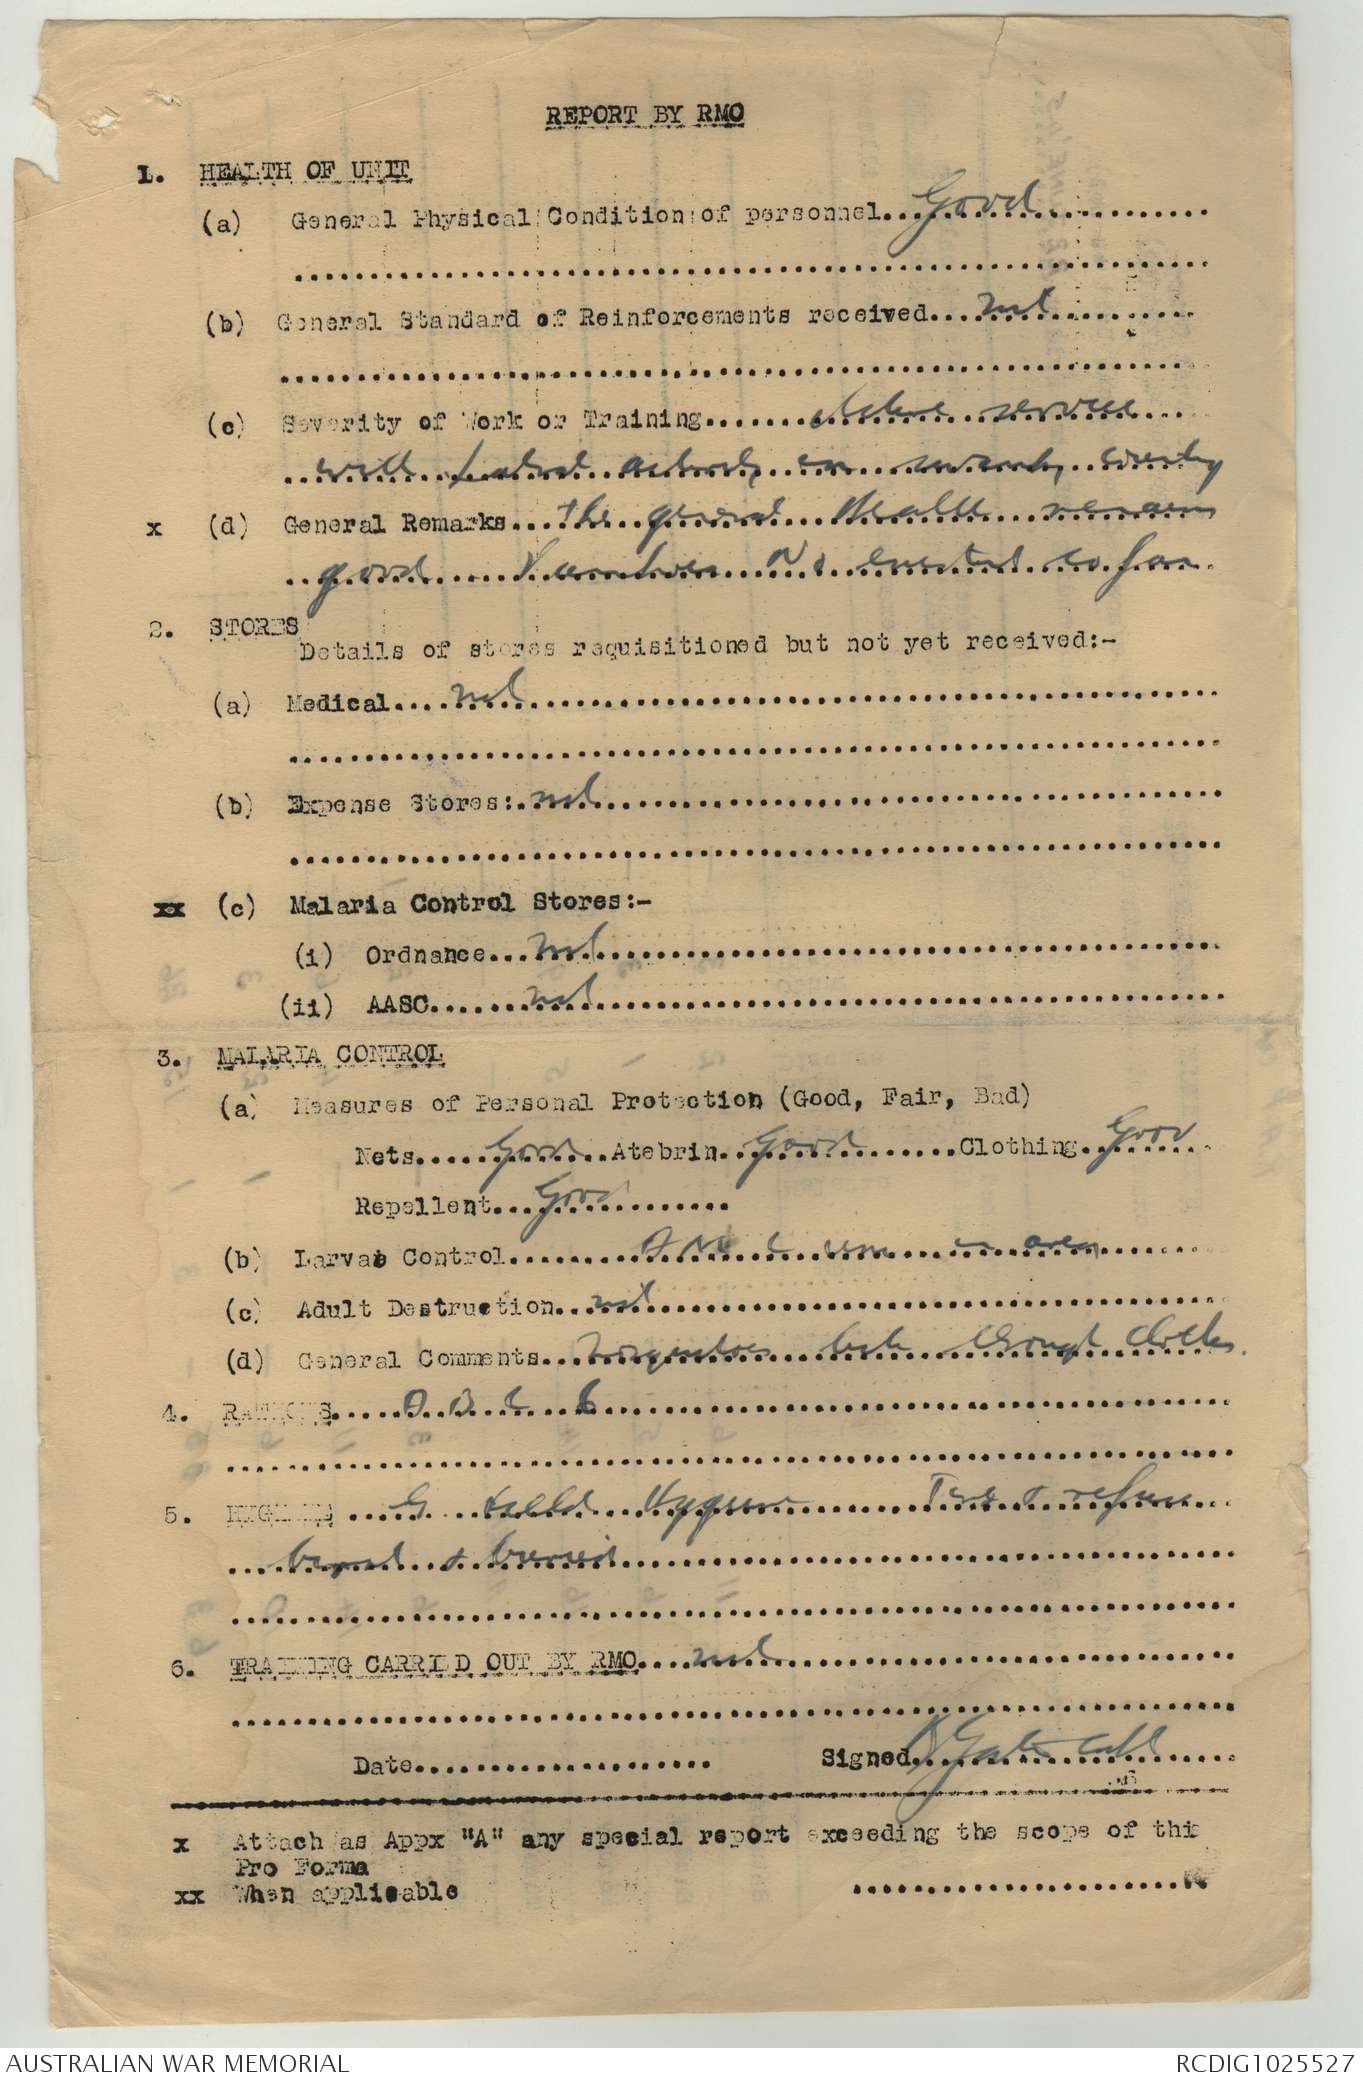 REPORT BY RMO
1. HEALTH OF UNIT
(a) General Physical Condition of personnel...Good
(b) General Standard of Reinforcements received...Nil
(c) Severity of Work or Training...Active service
with patrol activity in swampy country
x (d) General Remarks...The general Health remains
good.
2. STORES
Details of stores requisitioned but not yet received:-
(a) Medical...Nil
(b) Expense Stores:.Nil
xx (c) Malaria Control Stores:-
(i) Ordnance...Nil
(ii) AASC...Nil
3. MALARIA CONTROL
(a) Measures of Personal Protection (Good, Fair, Bad)
Nets...Good...Atebrin...Good...Clothing...Good
Repellent...Good
(b) Larvae Control... area
(c) Adult Destruction...Nil
(d) General Comments...Mosquitoes bite through clothes.
4. RATIONS...
5. HYGIENE... Field Hygiene Tins & refuse
burned & buried
6. TRAINING CARRIED OUT BY RMO...Nil
Date... Signed...
x Attach as Appx "A" any special report exceeding the scope of this
Pro Forma
xx When applicable
AUSTRALIAN WAR MEMORIAL RCDIG1025527